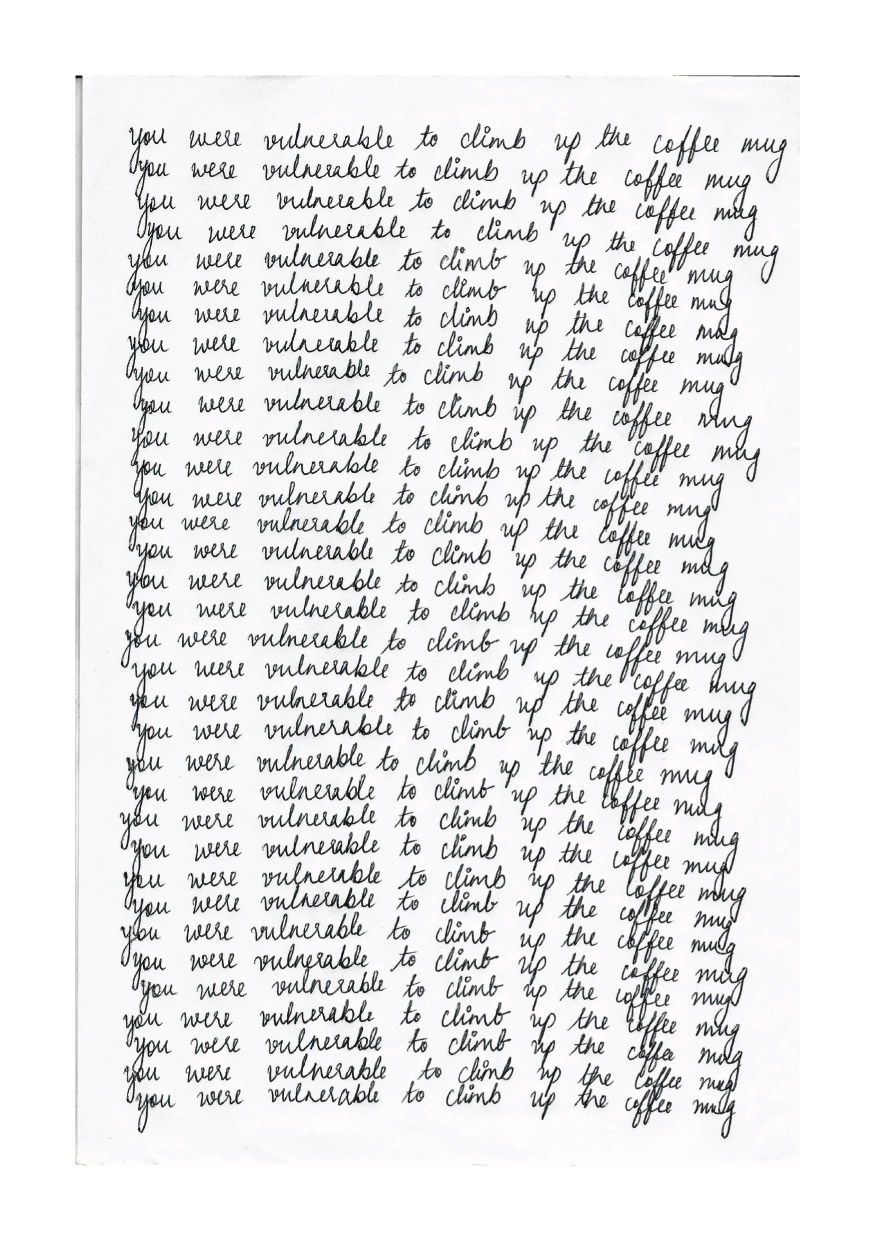 you were vulnerable to climb up the coffee mug
you were vulnerable to climb up the coffee mug
you were vulnerable to climb up the coffee mug
you were vulnerable to climb up the coffee mug
you were vulnerable to climb up the coffee mug
you were vulnerable to climb up the coffee mug
you were vulnerable to climb up the coffee mug
you were vulnerable to climb up the coffee mug
you were vulnerable to climb up the coffee mug
you were vulnerable to climb up the coffee mug
you were vulnerable to climb up the coffee mug
you were vulnerable to climb up the coffee mug
you were vulnerable to climb up the coffee mug
you were vulnerable to climb up the coffee mug
you were vulnerable to climb up the coffee mug
you were vulnerable to climb up the coffee mug
you were vulnerable to climb up the coffee mug
you were vulnerable to climb up the coffee mug
you were vulnerable to climb up the coffee mug
you were vulnerable to climb up the coffee mug
you were vulnerable to climb up the coffee mug
you were vulnerable to climb up the coffee mug
you were vulnerable to climb up the coffee mug
you were vulnerable to climb up the coffee mug
you were vulnerable to climb up the coffee mug
you were vulnerable to climb up the coffee mug
you were vulnerable to climb up the coffee mug
you were vulnerable to climb up the coffee mug
you were vulnerable to climb up the coffee mug
you were vulnerable to climb up the coffee mug
you were vulnerable to climb up the coffee mug
you were vulnerable to climb up the coffee mug
you were vulnerable to climb up the coffee mug
you were vulnerable to climb up the coffee mug